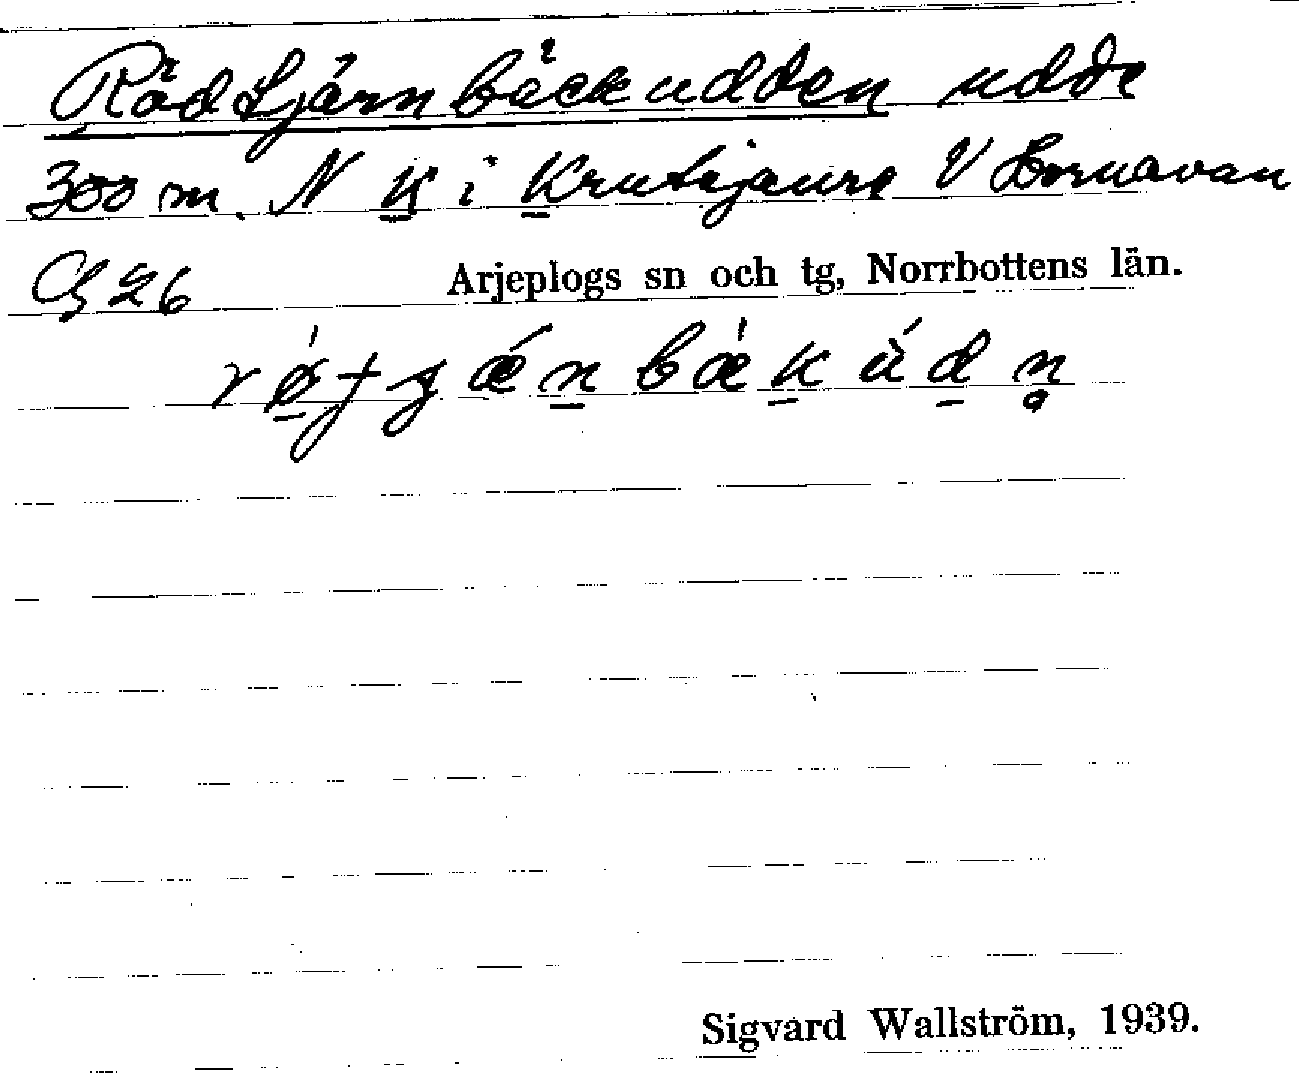 Rödtjärnbäckudden udde
300 m. N K i Krutijaure V Hornavan
26
Arjeplogs sn och tg, Norrbottens län.
Sigvard Wallström, 1939.